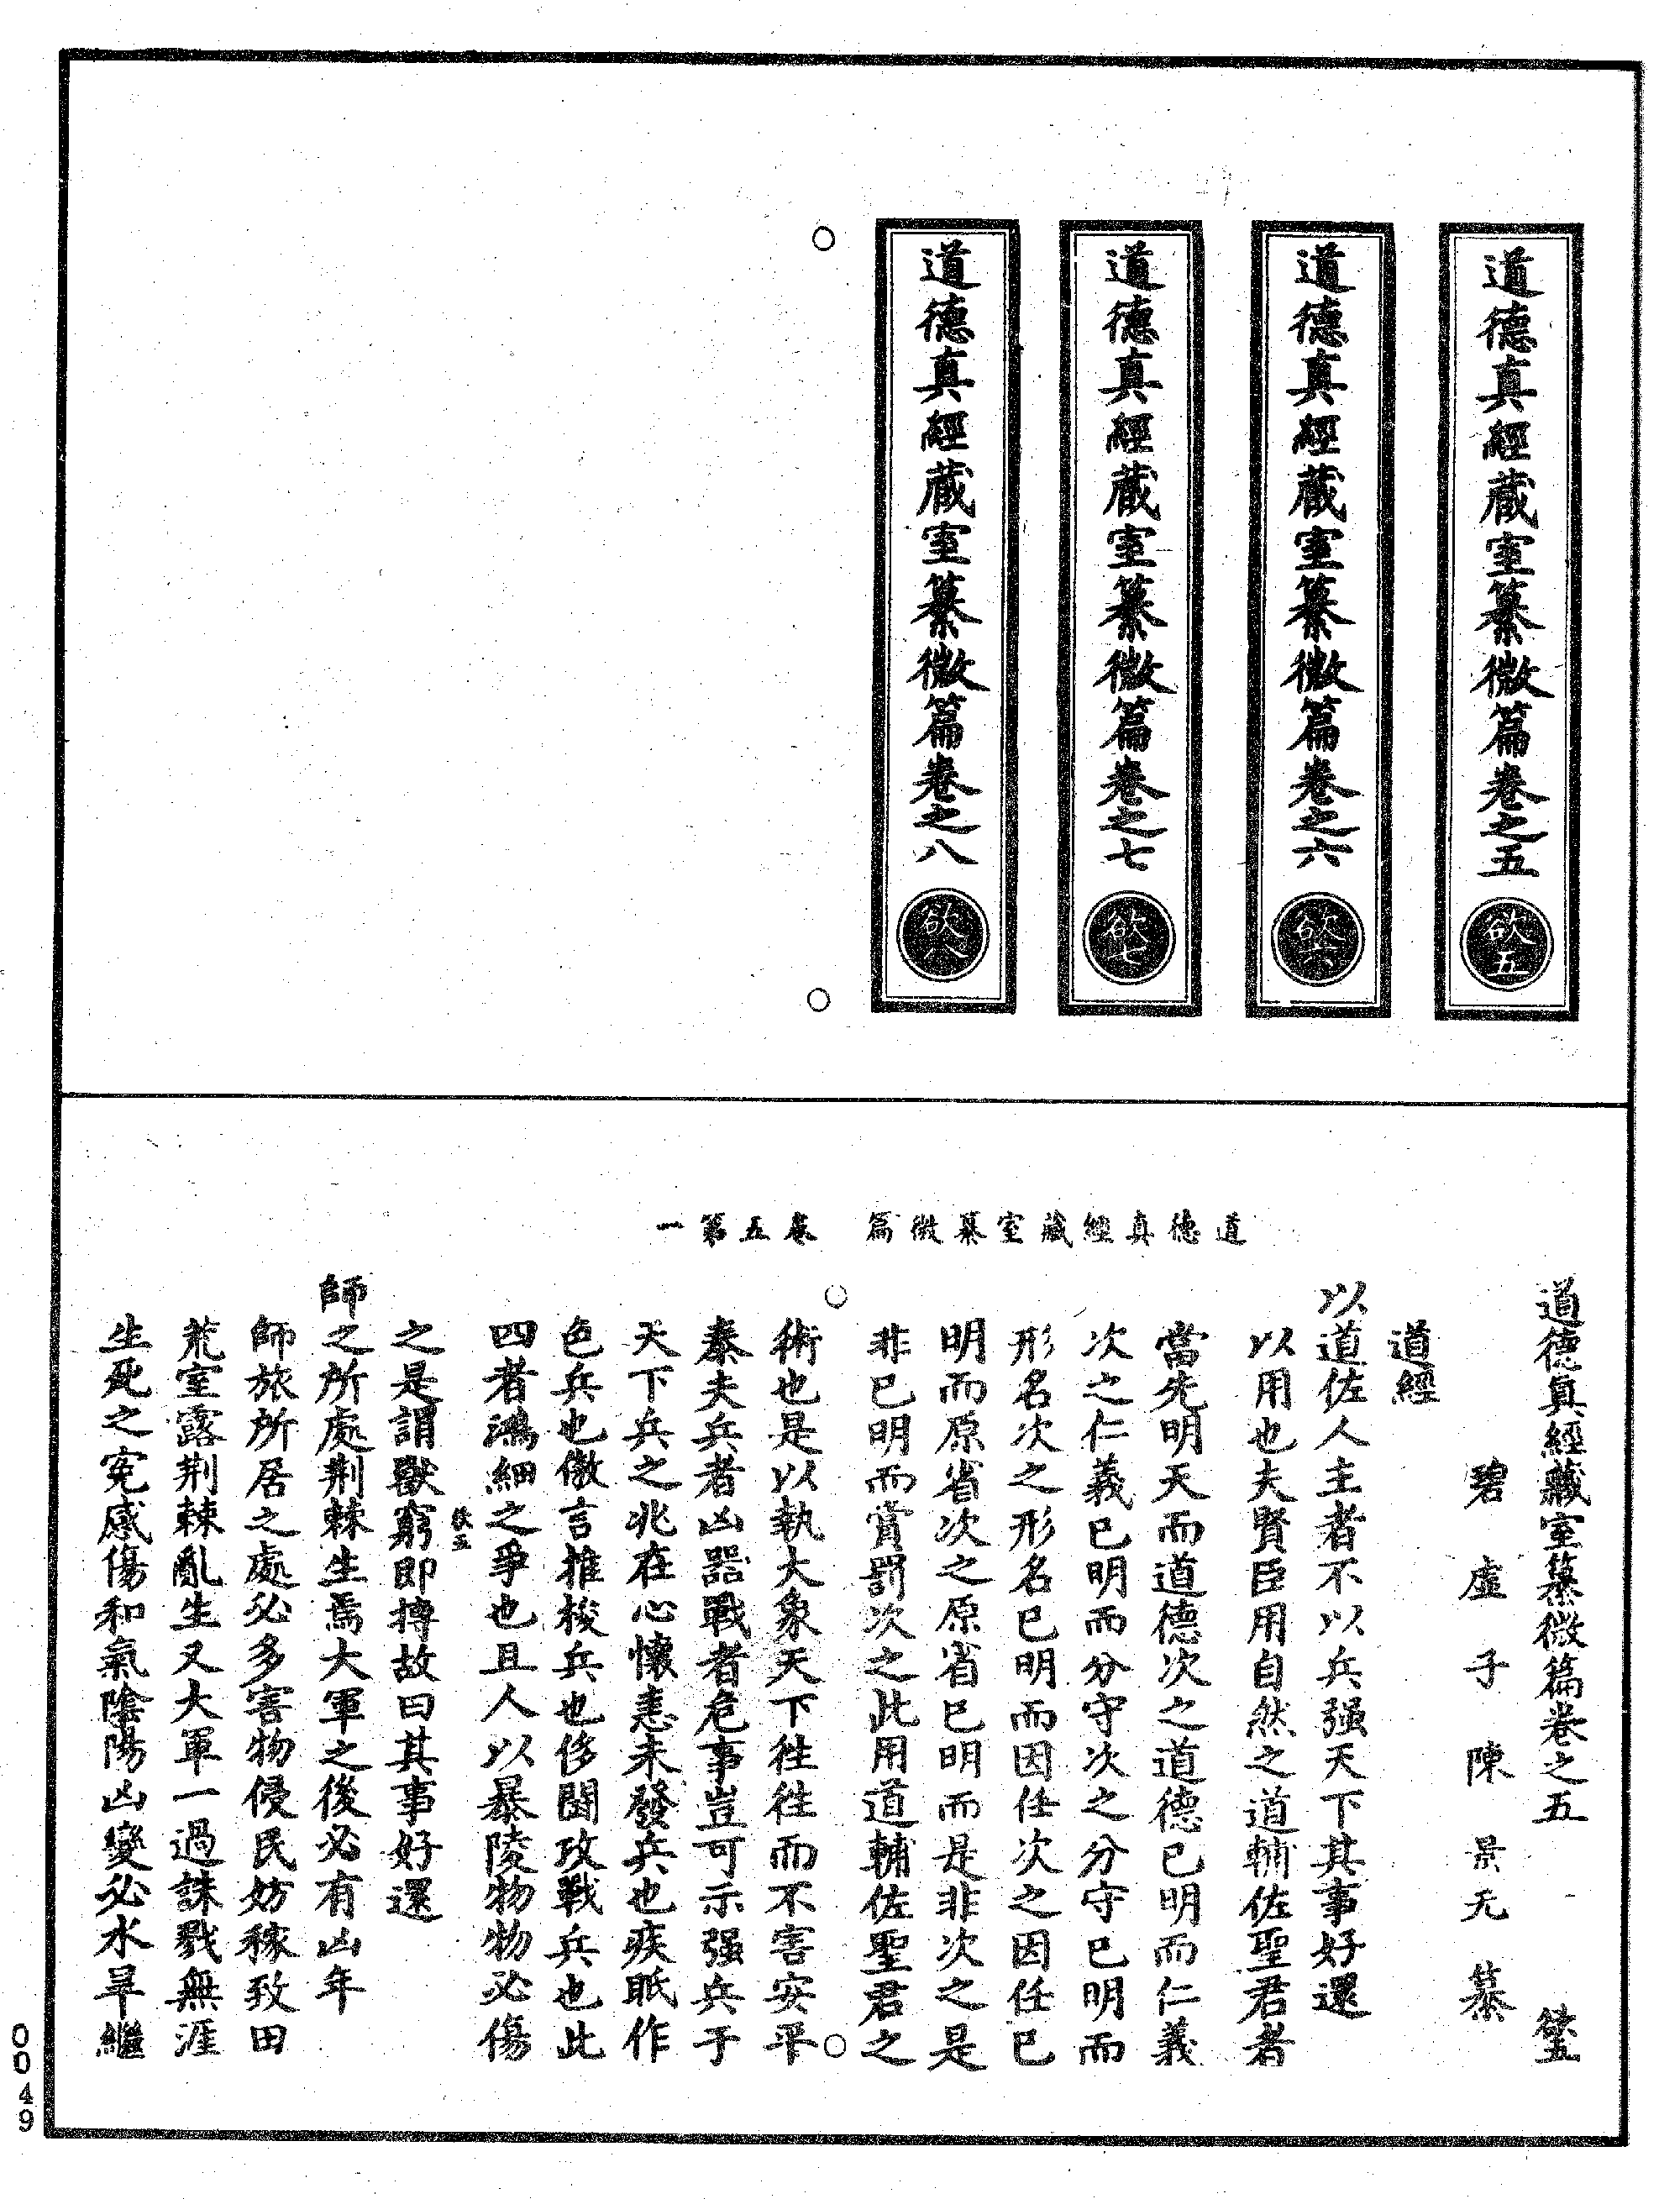 道德真經藏室纂微篇卷之五
欲五
道德真經藏室纂微篇卷之六
欲六
道德真經藏室纂微篇卷之七
欲七
道德真經藏室纂微篇卷之八
欲八
道德真經藏室纂微篇 卷五第一
道德真經藏室纂微篇卷之五
碧虛子陳景元纂
道經
以道佐人主者不以兵强天下其事好還
以用也夫賢臣用自然之道輔佐聖君者
當先明天而道德次之道德已明而仁義
次之仁義已明而分守次之分守已明而
形名次之形名已明而因任次之因任已
明而原省次之原省已明而是非次之是
非已明而賞罰次之此用道輔佐聖君之
術也是以執大象天下往往而不害安平
泰夫兵者凶器戰者危事豈可示强兵于
天下兵之兆在心懷恚未發兵也疾眂作
色兵也傲言推捘兵也侈鬪攻戰兵也此
四者鴻細之爭也且人以暴陵物物必傷
之是謂獸窮即搏故曰其事好還
欲五
師之所處荆棘生焉大軍之後必有凶年
師旅所居之處必多害物侵民妨稼致田
荒室露荆棘亂生又大軍一過誅戮無涯
生死之寃感傷和氣陰陽凶變必水旱繼
0049